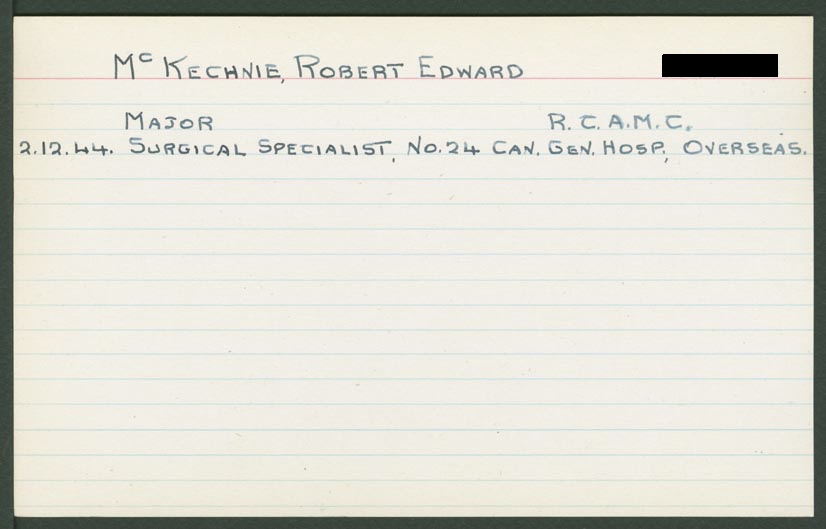 Mc KECHNIE, ROBERT EDWARD
MAJOR R.C.A.M.C.
2.12.44. SURGICAL SPECIALIST, NO.24 CAN. GEN. HOSP., OVERSEAS.